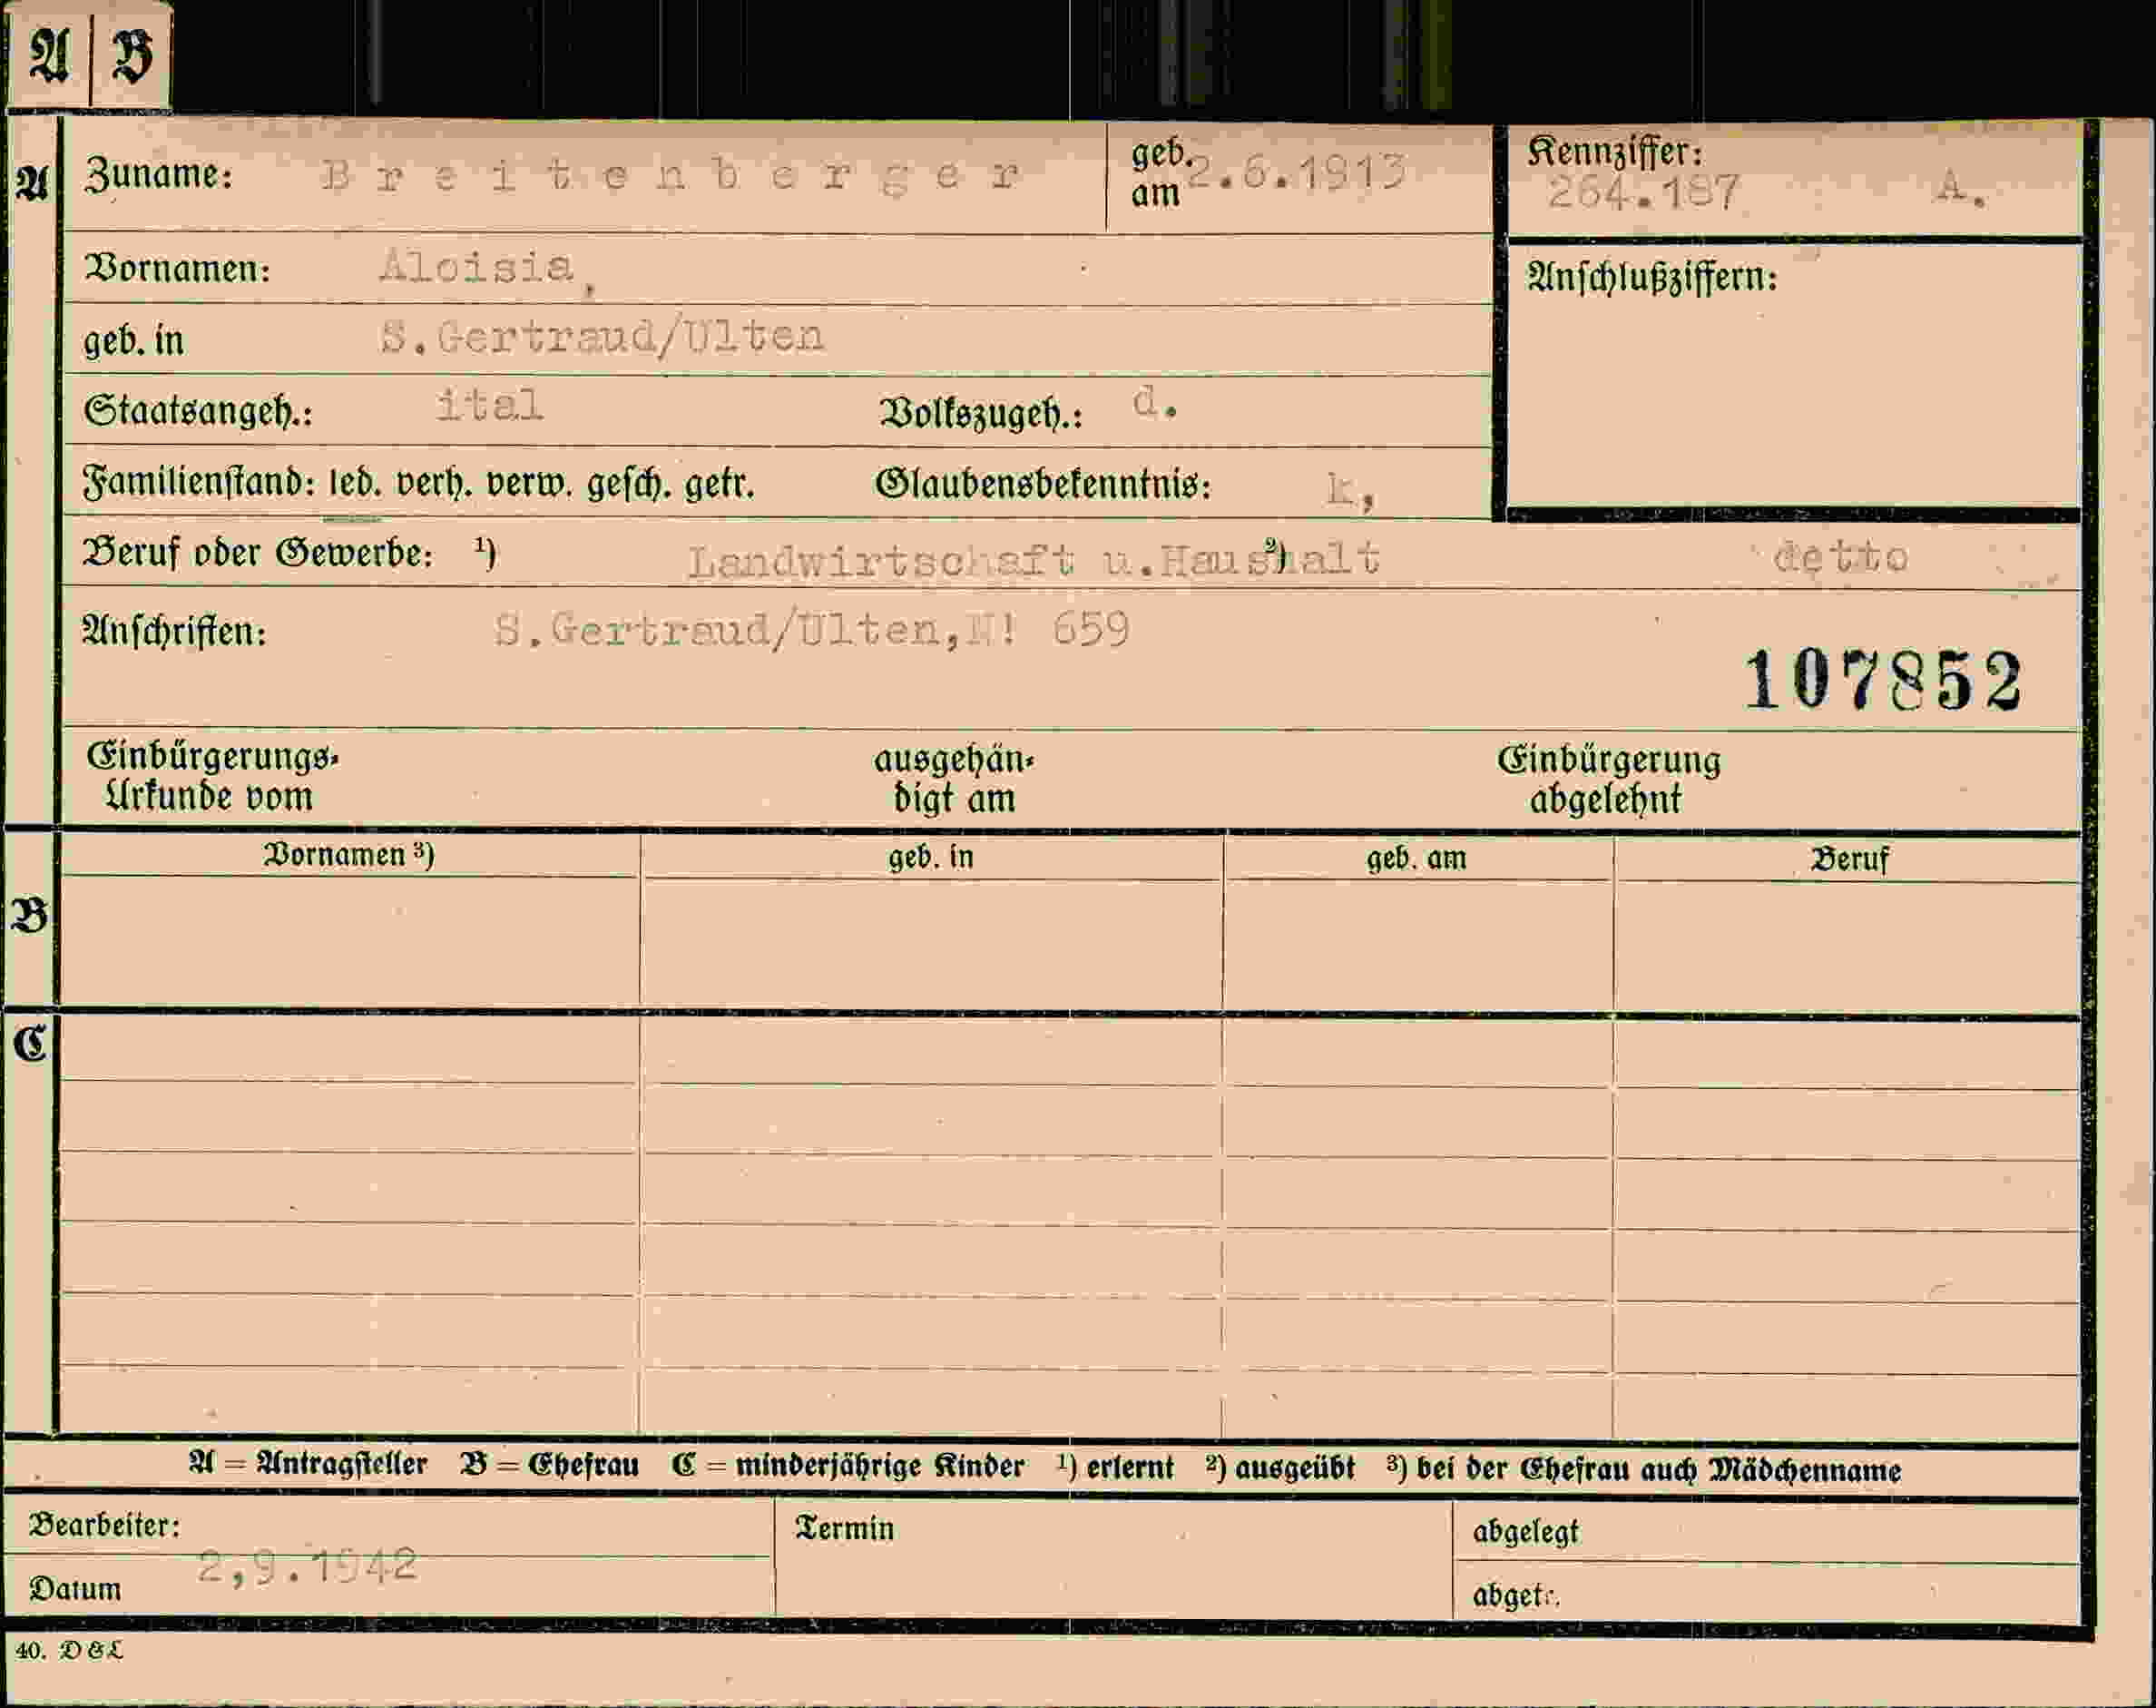 A B
A
Zuname: Breitenberger geb. am 2.6.1913
Kennziffer: 264.187 A.
Vornamen: Aloisia,
Anschlußziffern:
geb. in S.Gertraud/Ulten
Staatsangeh.: ital Volkszugeh.: d.
Familienstand: led. verh. verw. gesch. getr. Glaubensbekenntnis: k,
Beruf oder Gewerbe: ¹) Landwirtschaft u.Haushalt ²) detto
Anschriften: S.Gertraud/Ulten,N! 659
107852
Einbürgerungs-Urkunde vom ausgehändigt am Einbürgerung abgelehnt
B
Vornamen ³) geb. in geb. am Beruf
C
A = Antragsteller B = Ehefrau C = minderjährige Kinder ¹) erlernt ²) ausgeübt ³) bei der Ehefrau auch Mädchenname
Bearbeiter: Termin abgelegt
Datum 2,9.1942 abgetr.
40. D&L